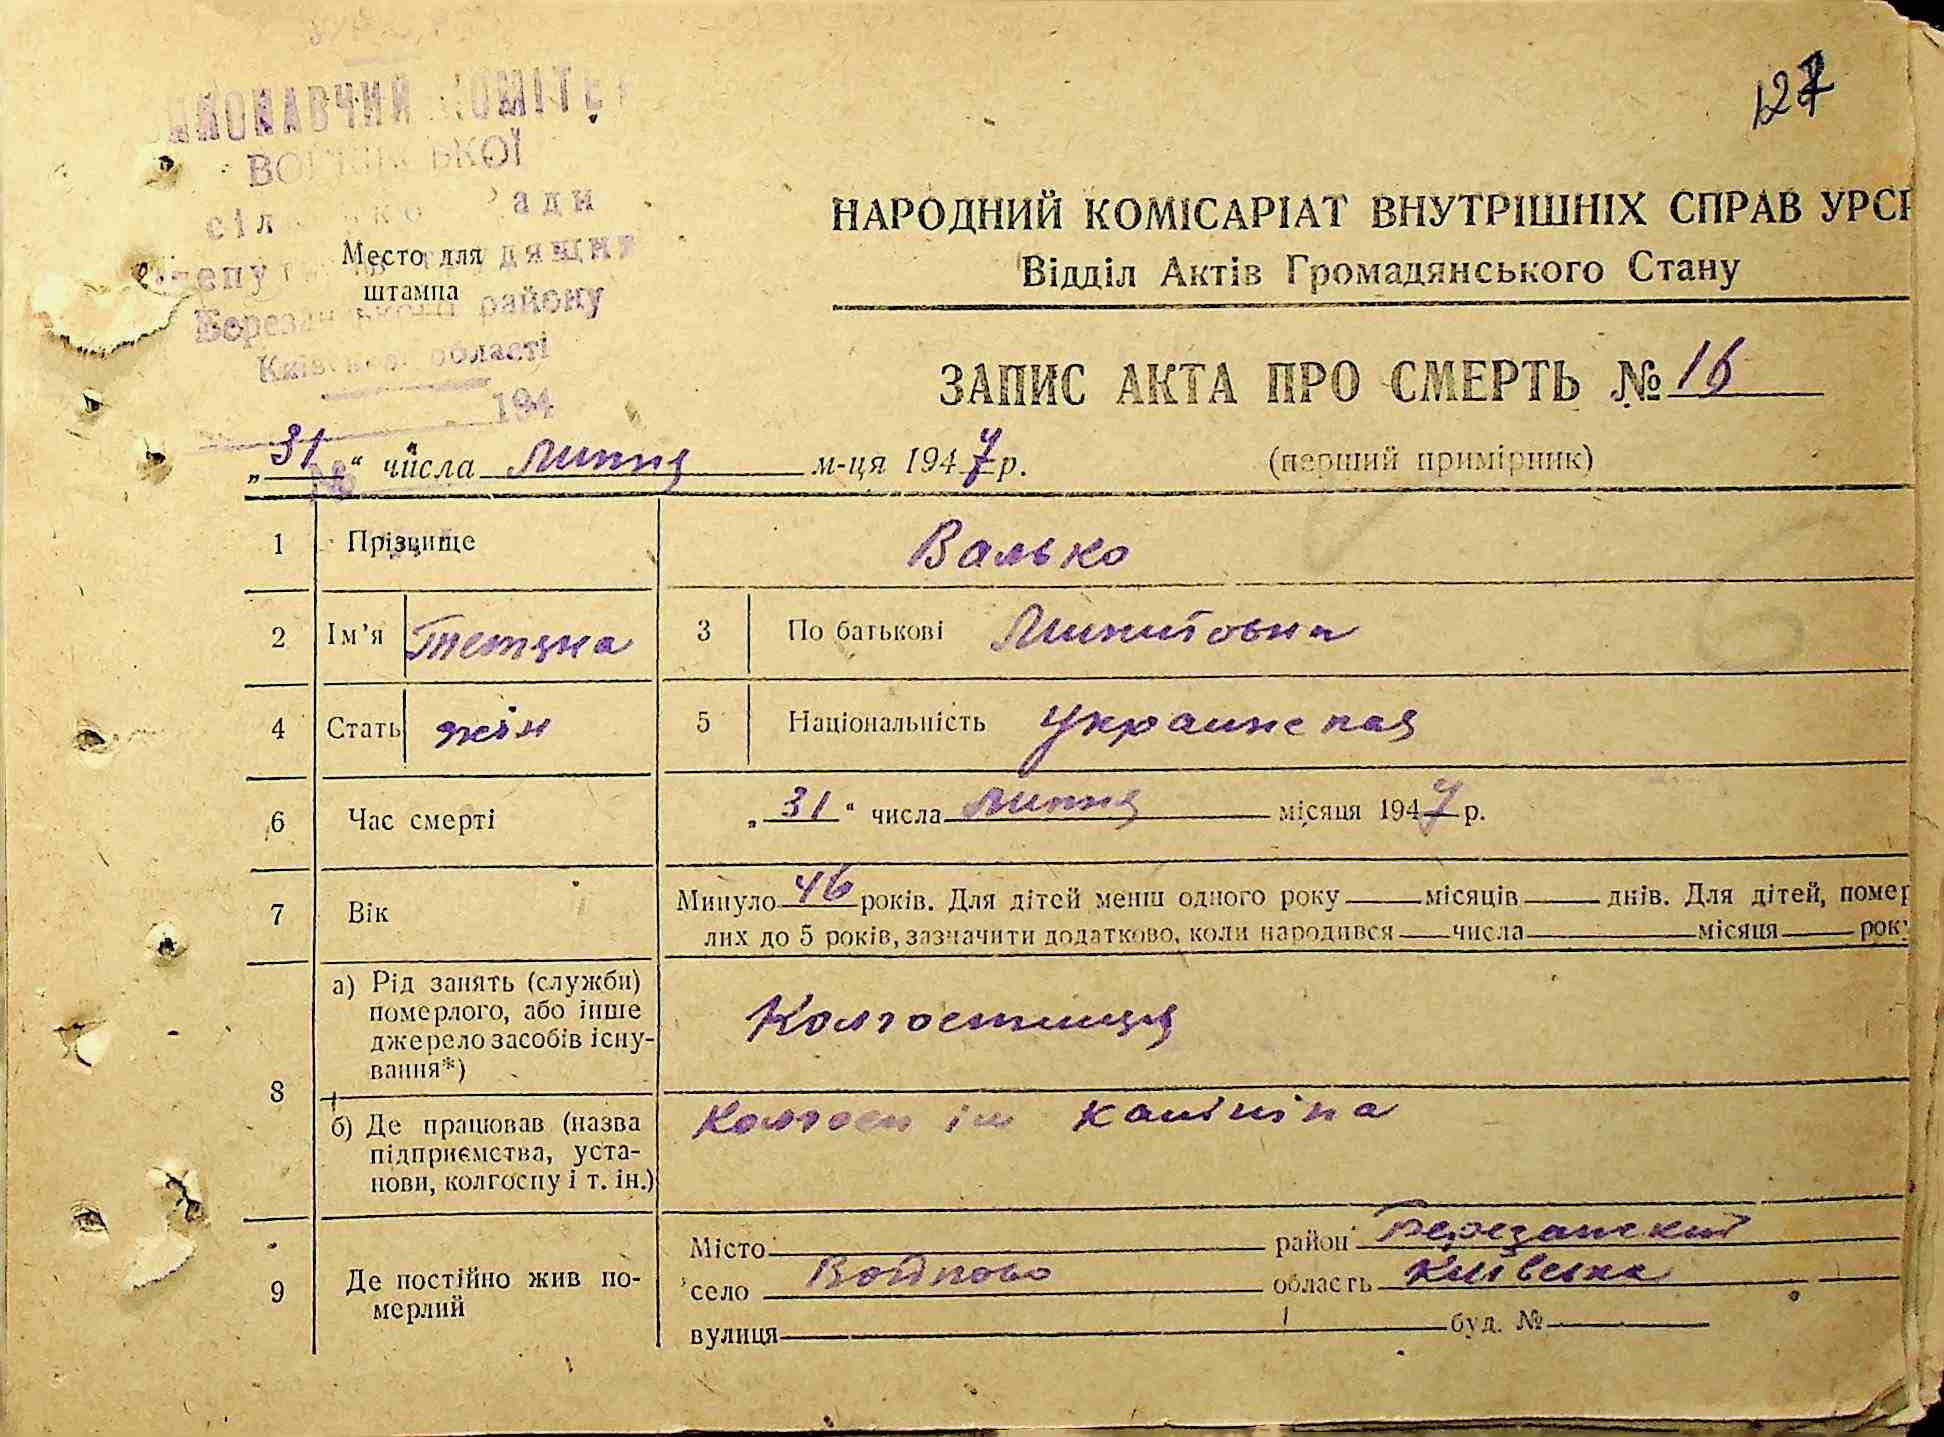 127
НАРОДНИЙ КОМІСАРІАТ ВНУТРІШНІХ СПРАВ УРСР
Відділ Актів Громадянського Стану
Место для
штампа
Березанського району
Київської області
194
ЗАПИС АКТА ПРО СМЕРТЬ № 16
„31“ числа Липня м-ця 1947 р.
(перший примірник)
1 Прізвище Валько
2 Ім’я Тетяна 3 По батькові Микитовна
4 Стать жін 5 Національність Украинская
6 Час смерті „31“ числа Липня місяця 1947 р.
7 Вік Минуло 46 років. Для дітей менш одного року місяців днів. Для дітей, помер
лих до 5 років, зазначити додатково, коли народився числа місяця року
8 а) Рід занять (служби)
померлого, або інше
джерело засобів існу-
вання*)
Колгоспниця
б) Де працював (назва
підприємства, уста-
нови, колгоспу і т. ін.)
Колгосп ім Калініна
9 Де постійно жив по-
мерлий
Місто район Березанский
село Войтово область Київська
вулиця буд. №